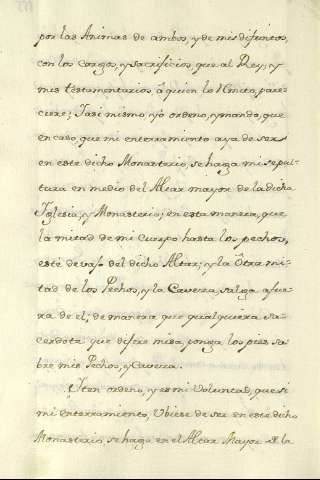 por las Animas de ambos, y de mis difuntos,
con los cargos, y sacrificios, que al Rey, y
mis testamentarios à quien lo remito, pare-
ciere; Iasi mismo yo ordeno, y mando, que
en caso que mi enterramiento aya de ser
en este dicho Monasterio, se haga mi sepul-
tura en medio del Altar mayor de la dicha
Iglesia, y Monasterio; en esta manera, que
la mitad de mi Cuerpo hasta los pechos,
esté devajo del dicho Altar; y la Otra mi-
tad de los Pechos, y la Caveza, salga afue-
ra de el, de manera que qualquiera sa-
cerdote que dijere misa, ponga los pies so-
bre mis Pechos, y Caveza.
Yten ordeno, y es mi Voluntad, que si
mi enterramiento, Ubiese de ser en este dicho
Monasterio, se haga en el Altar Mayor de la